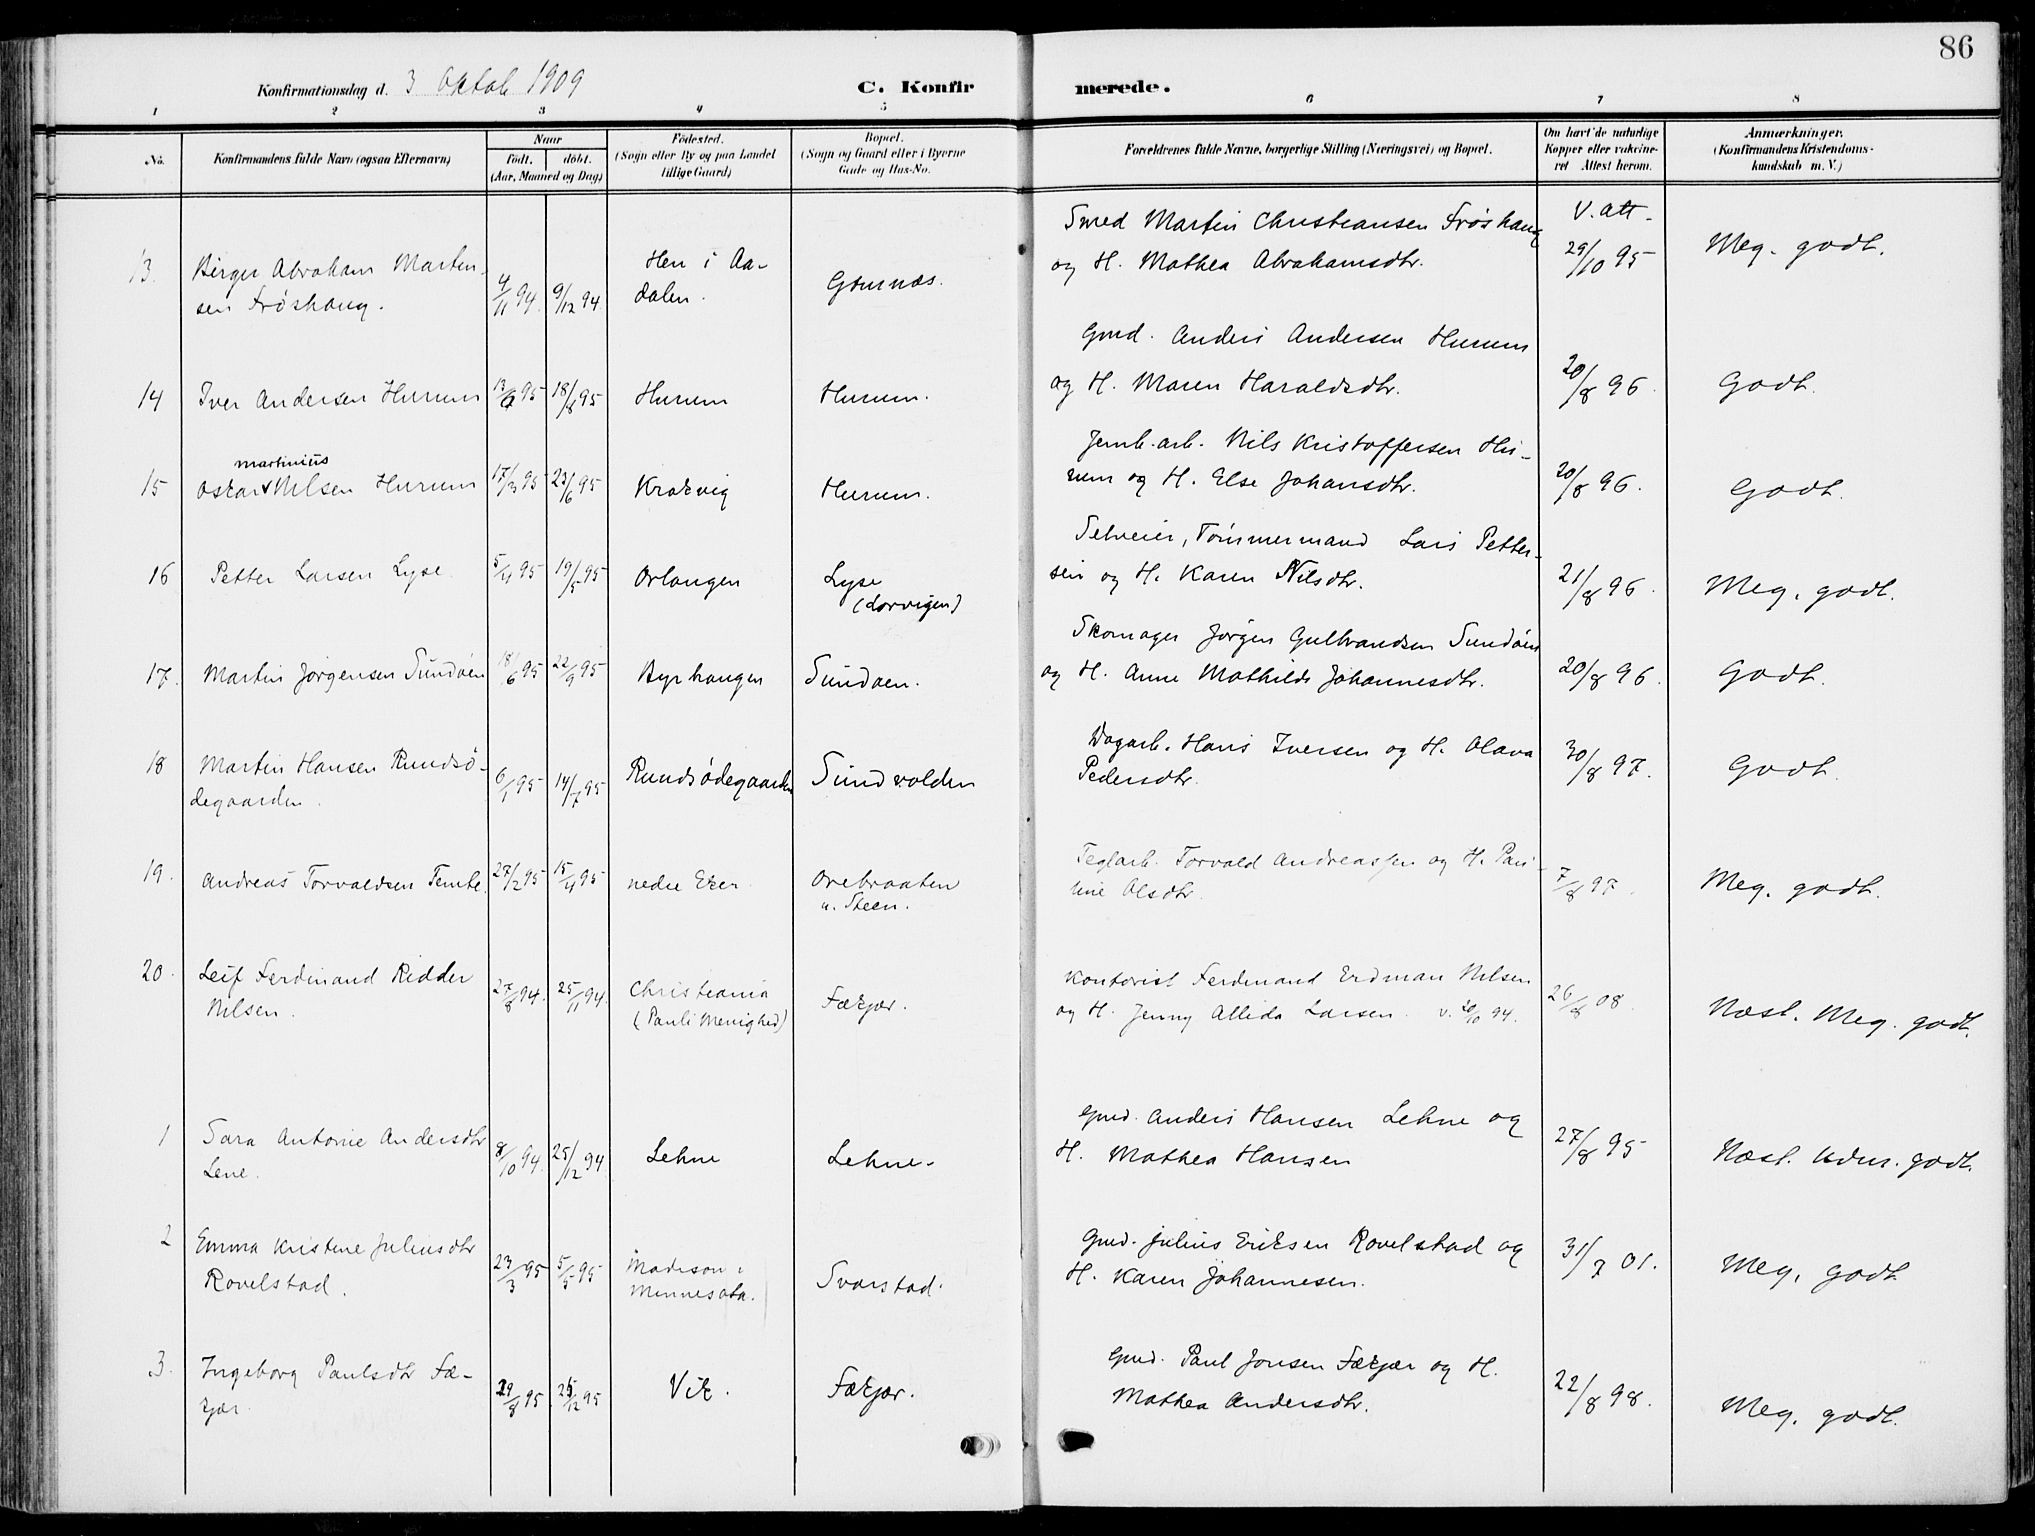 86
Konfirmationsdag d. 3 Oktob 1909
C. Konfirmerede.
1 2 3 4 5 6 7 8
No. Konfirmandens fulde Navn (ogsaa Efternavn) Naar født. døbt. (Aar, Maaned og Dag) Födested. (Sogn eller By og paa Landet tillige Gaard) Bopæl. (Sogn og Gaard eller i Byerne Gade og Hus-No. Forældrenes fulde Navne, borgerlige Stilling (Næringsvei) og Bopæl. Om havt de naturlige Kopper eller vakcineret Attest herom. Anmærkninger. (Konfirmandens Kristendomskundskab m. V.)
13. Birger Abraham Martin-
sen Frøshaug.
4/11 94 9/12 94 Hen i Aa-
dalen.
Gomnæs.
Smed Martin Christiansen Frøshaug
og H. Mathea Abrahamsdtr.
V. att.
29/10 95 Meg. godt.
14 Iver Andersen Hurum 13/6 95 18/8 95 Hurum Hurum.
Gmd. Anders Andersen Hurum
og H. Maren Haraldsdtr.
20/8 96. Godt.
martinius
15 Oskar Nilsen Hurum 17/3 95 23/6 95 Krokvig Hurum.
Jernb.arb. Nils Kristoffersen Hu-
rum og H. Else Johansdtr.
20/8 96. Godt.
16 Petter Larsen Lyse 5/4 95 19/5 95 Orlangen Lyse
(Lorvigen)
Selveier, Tømmermand Lars Petter-
sen og H. Karen Nilsdtr.
21/8 96. Meg. godt.
17. Martin Jørgensen Sundøen 18/6 95 22/9 95 Byrhaugen Sundøen.
Skomager Jørgen Gulbrandsen Sundøen
og H. Anne Mathilde Johannesdtr.
20/8 96. Godt.
18 Martin Hansen Rundsø-
degaarden.
6/1 95 14/7 95 Rundsødegaarden Sundvolden
Dagarb. Hans Iversen og H. Olava
Pedersdtr.
30/8 97. Godt.
19. Andreas Torvaldsen Temte. 27/2 95 15/4 95 nedre Eker Orebraaten
u. Steen.
Teglarb. Torvald Andreassen og H. Pau-
line Olsdtr.
7/8 97. Meg. godt.
20. Leif Ferdinand Ridder
Nilsen.
27/8 94. 25/11 94. Christiania
(Pauli Menighed)
Fækjær.
Kontorist Ferdinand Erdman Nilsen
og H. Jenny Allida Larsen. v. 20/10 94.
26/8 08. Næst. Meg. godt.
1 Sara Antonie Andersdtr
Lene.
8/10 94. 25/12 94. Lehne Lehne.
Gmd. Anders Hansen Lehne og
H. Mathea Hansen
27/8 95 Næst. Udm. godt.
2 Emma Kristine Juliusdtr
Rovelstad.
23/3 95 5/5 95 Madison i
Minnesota.
Svarstad.
Gmd. Julius Eriksen Rovelstad og
H. Karen Johannesen.
31/7 01. Meg. godt
3. Ingeborg Paulsdtr Fæ-
kjær.
29/8 95 25/12 95 Vik. Fækjær.
Gmd. Paul Jonsen Fækjær og H.
Mathea Andersdtr.
22/8 98. Meg. godt.